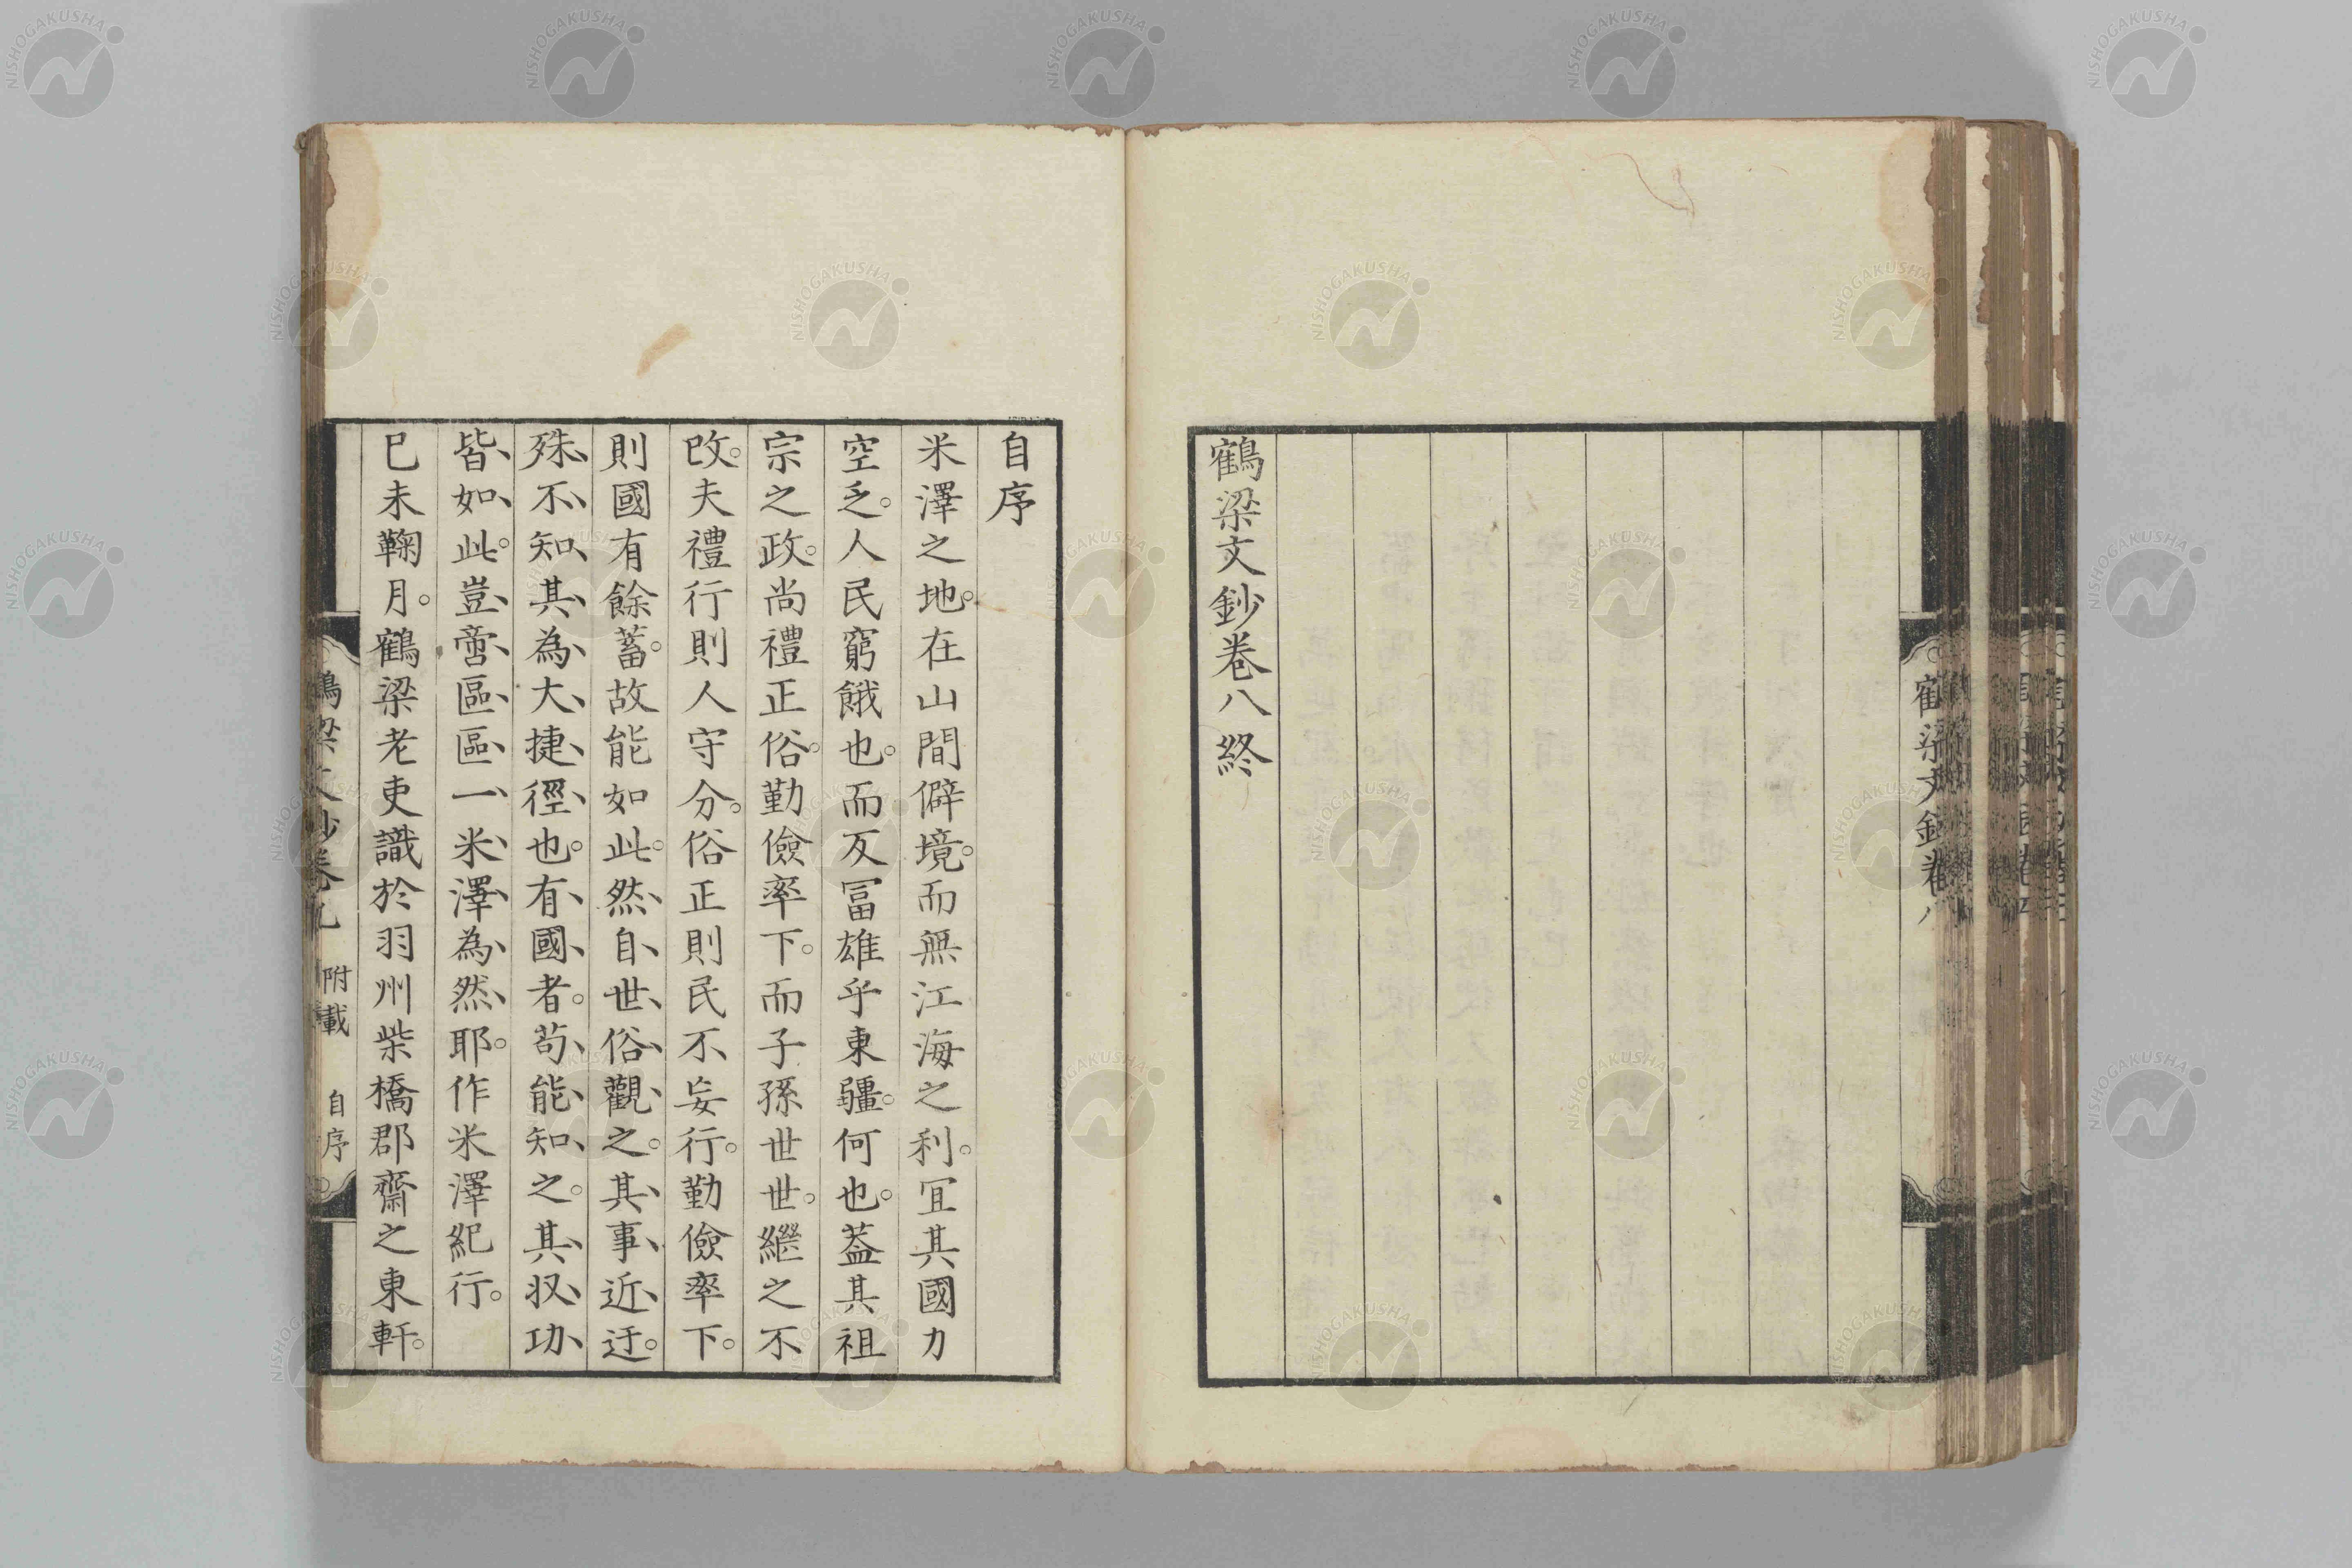 鶴梁文鈔卷八
鶴梁文鈔卷八終
自序
米澤之地。在山間僻境。而無江海之利。冝其國力
空乏。人民窮餓也。而反冨雄乎東疆。何也。蓋其祖
宗之政。尚禮正俗。勤儉率下。而子孫世世。繼之不
改。夫禮行則人守分。俗正則民不妄行。勤儉率下。
則國有餘蓄。故能如此。然、自、世、俗、觀、之。其、事、近、迂。
殊、不、知、其、為、大、捷、徑、也。有、國、者。苟、能、知、之。其、収、功、
皆、如、此。豈、啻、區、區、一、米、澤、為、然、耶。作米澤紀行。
巳未鞠月。鶴梁老吏識於羽州柴橋郡齋之東軒。
鶴梁文鈔卷九 附載 自序
NISHOGAKUSHA